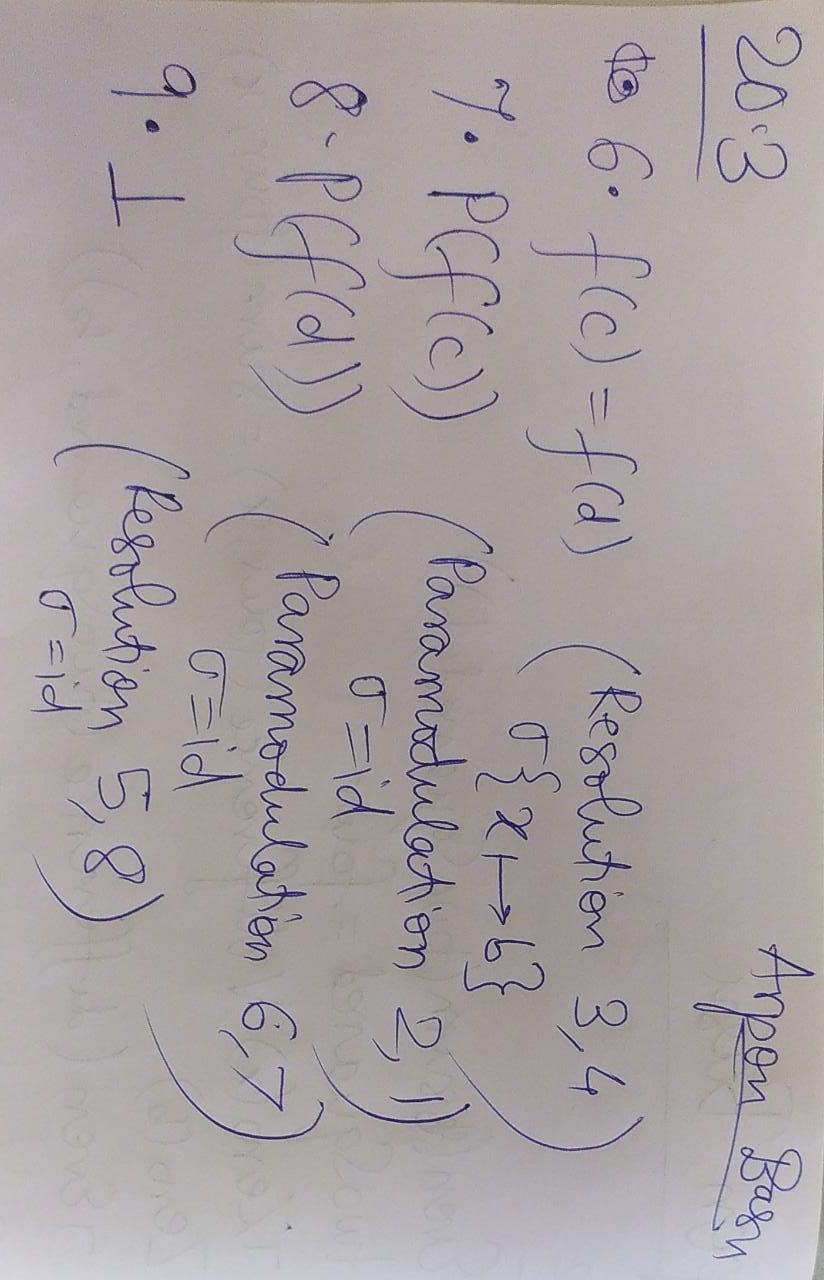 20.3
Arpon Basu
6. f(c) = f(d) (Resolution 3,4
σ{x ↦ b})
7. P(f(c)) (Paramodulation 2,1)
σ=id
8. P(f(d)) (Paramodulation 6,7)
σ=id
9. ⊥ (Resolution 5,8)
σ=id